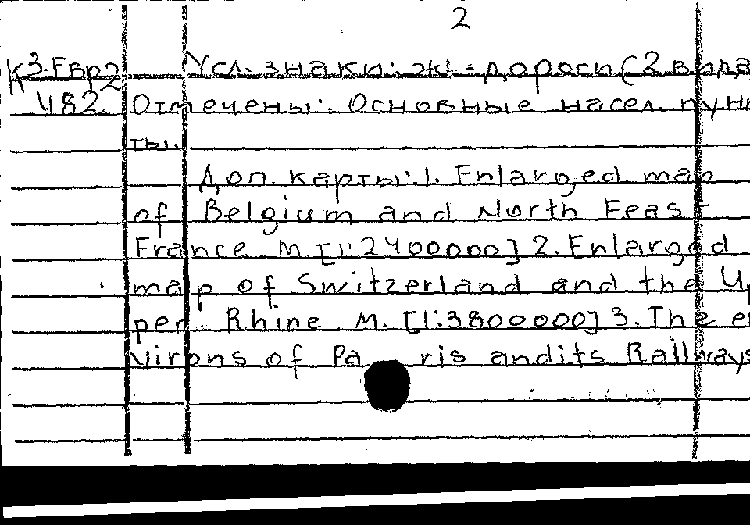 2
К3-Евр2 Усл. знаки: ж.-дороги (2 вида
482. Отмечены: Основные насел. пунк
ты.
Доп. карты: 1. Enlarged map
of Belgium and North Feast
France M. [1:2400000] 2. Enlarged
map of Switzerland and the Up
per Rhine M. [1:3800000] 3. The en
virons of Pa ris andits Railways